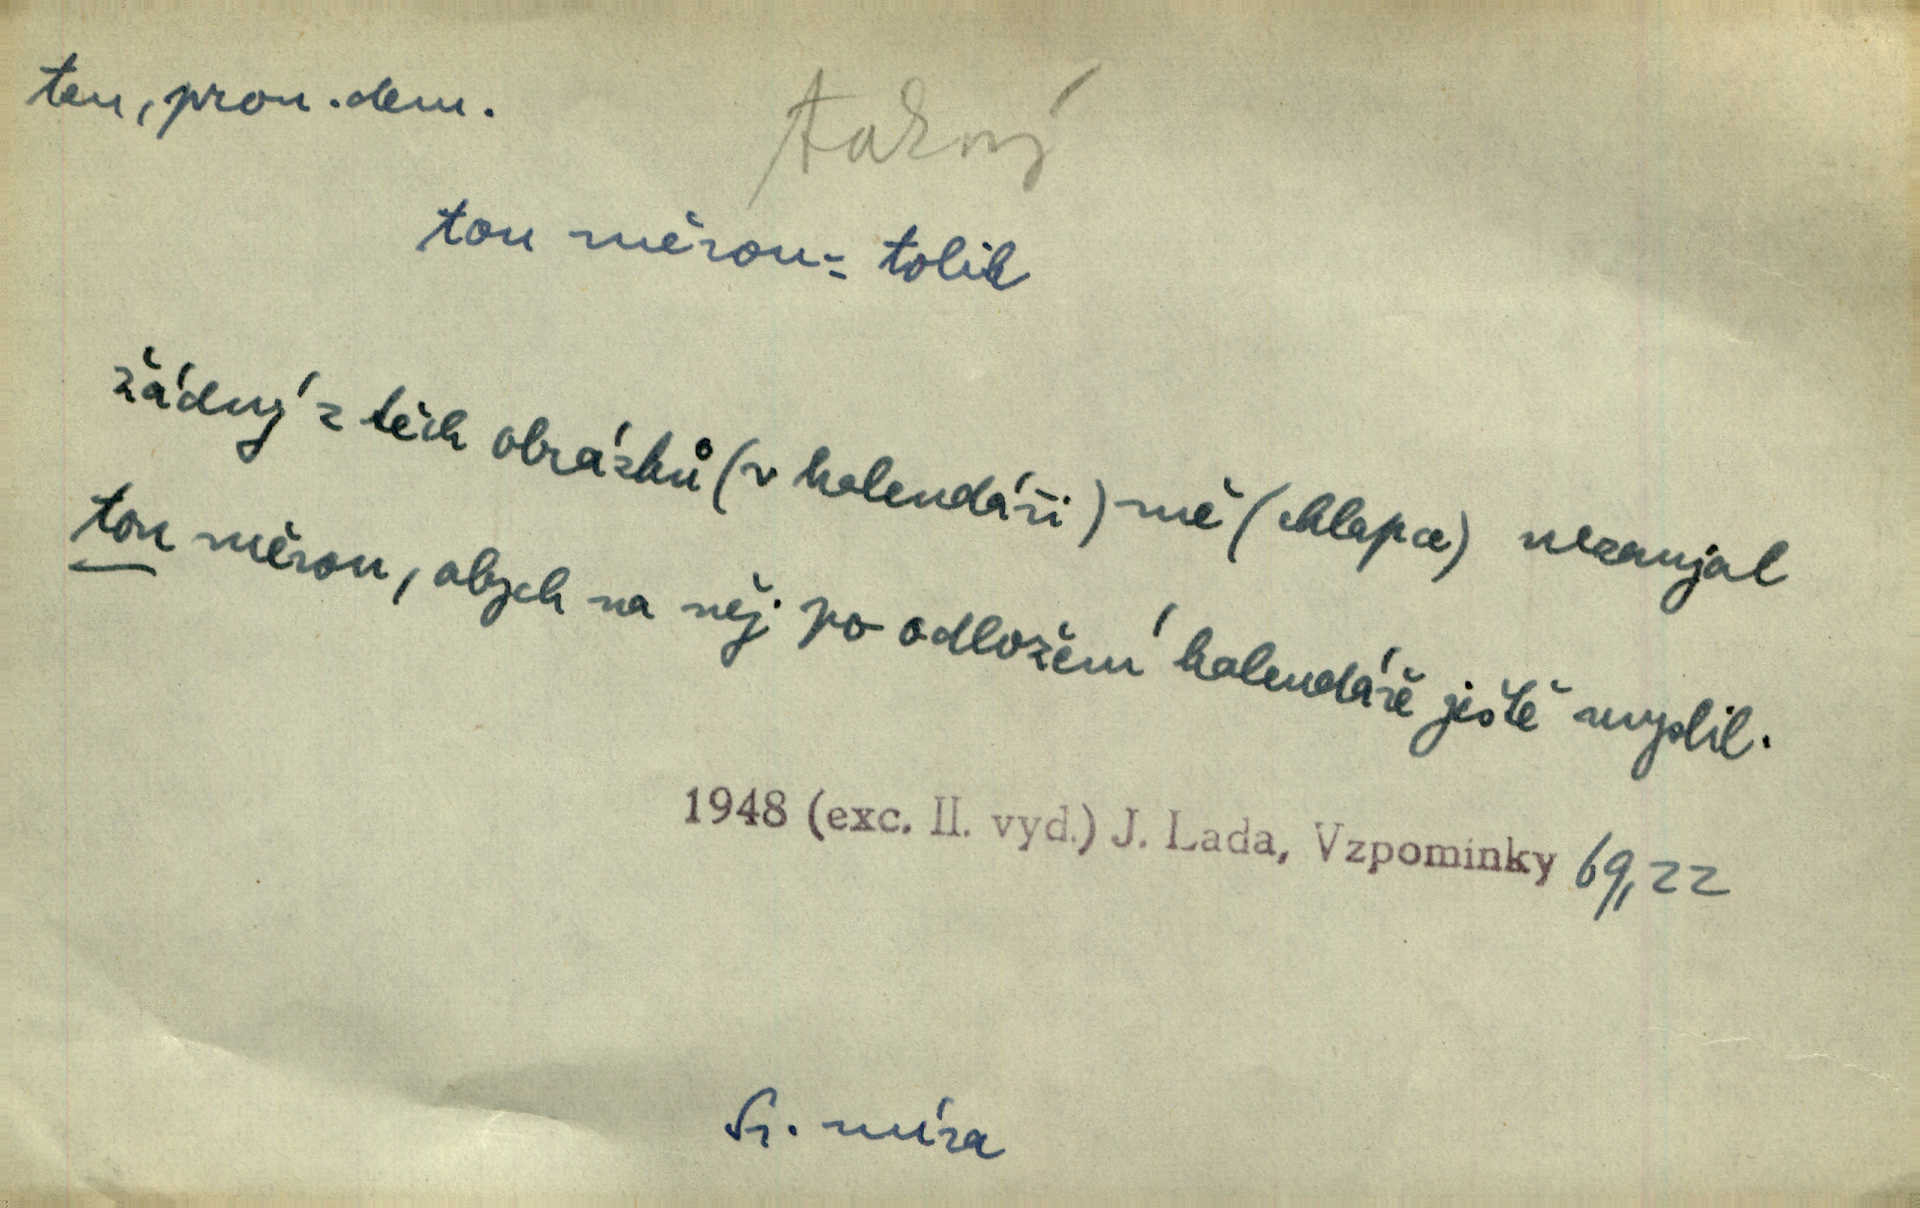 ten, pron. dem.
takový
tou měrou = tolik
žádný z těch obrázků (v kalendáři) mě (chlapce) nezaujal
tou měrou, abych na něj po odložení kalendáře ještě myslil.
1948 (exc. II. vyd.) J. Lada, Vzpomínky 69,22
Sr. míra